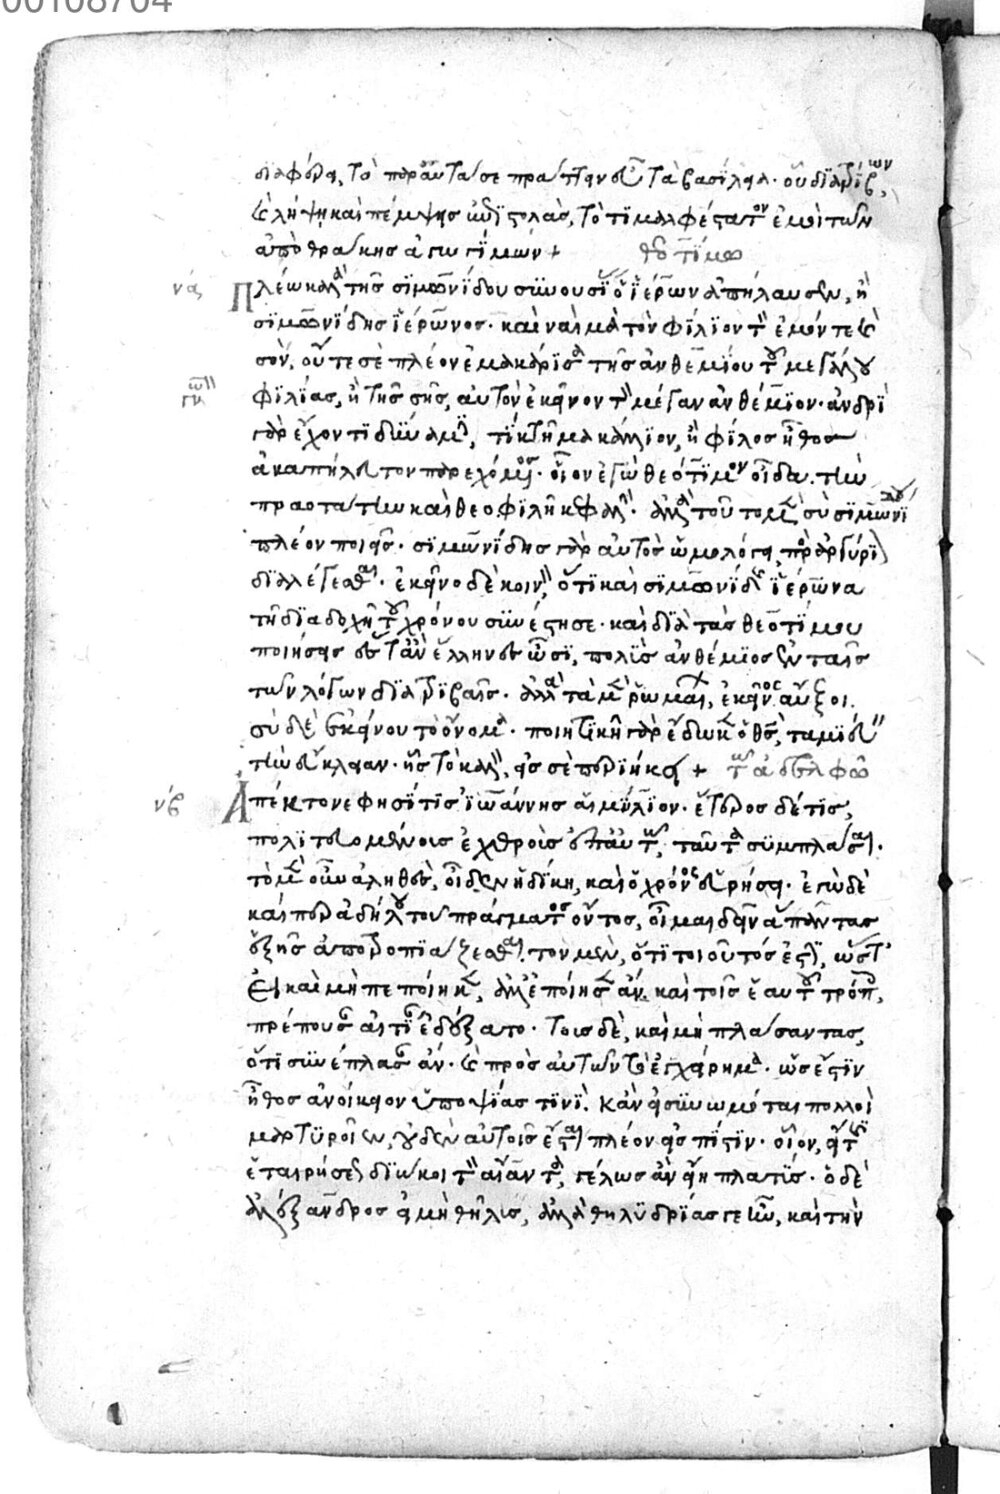 00108704
διαφόρῳ, τὸ παρὸν τά σε πράττειν τὰ βασίλεια. οὐ διατρίβων
καὶ πέμψῃς ἐπιστολὰς, τὸ τιμαλφέστατον ἐμοὶ τῶν
ἀπὸ θράκης ἀγωγίμων +
θεοτίμω
να
Πλέω καλὰ τῆς σιμωνίδου συνουσίας ὁ ἱέρων ἀπήλαυσεν, ἢ
σιμωνίδης ἱέρωνος. καὶ ναὶ μὰ τὸν φίλιον τὸν ἐμόν τε καὶ
σόν, οὔτε σὲ πλέον ἐμακάρισα τῆς ἀνθεμίου τοῦ μεγάλου
φιλίας, ἢ τῆς σῆς, αὐτὸν ἐκεῖνον τὸν μέγαν ἀνθέμιον. ἀνδρὶ
γὰρ ἔχοντι δύναμιν, τί κτῆμα κάλλιον, ἢ φίλος ἦθος
ἀκαπήλευτον παρεχόμενος. οἷον ἐγὼ θεότιμον οἶδα. τὴν
πραοτάτην καὶ θεοφιλῆ κεφαλήν. ἀλλὰ τοῦτο μὲν σὺ σιμωνίδου
πλέον ποιεῖς. σιμωνίδης γὰρ αὐτὸς ὡμολόγει, πρὸς ἀργύριον
διαλέγεσθαι. ἐκεῖνο δὲ κοινὸν, ὅτι καὶ σιμωνίδης ἱέρωνα
τῇ διαδοχῇ τοῦ χρόνου συνέστησε. καὶ διὰ τὰς θεοτίμου
ποιήσεις ἔστ' ἂν ἕλληνες ὦσι, πολὺς ἀνθέμιος ἐν ταῖς
τῶν λόγων διατριβαῖς. ἀλλὰ τὰ μὲν ῥωμαίων, ἐκεῖνος αὔξοι.
σὺ δὲ ἐκείνου τὸ ὄνομα. ποιητικῇ γὰρ ἔδωκεν ὁ θεὸς, ταμιεύειν
τὴν εὔκλειαν. ἧς τὸ καλὸν, εἰς σὲ περιήκει +
τῷ ἀδελφῷ
νβ
Ἀπέκτονε φησί τις ἰωάννης αἰμύλιον. ἕτερος δέ τις,
πολιτευομένοις ἐχθροῖς ταῦτα συμπλάσαι.
τὸ μὲν οὖν ἀληθὲς, οἶδεν ἡ δίκη, καὶ ὁ χρόνος εὑρήσει. ἐγὼ δὲ
καὶ περὶ ἀδήλου τοῦ πράγματος ὄντος, οἶμαι δεῖν ἅπαντας
ἑξῆς ἀποτροπιάζεσθαι. τὸν μὲν, ὅτι τοιοῦτός ἐστιν, ὥστ'
εἰ καὶ μὴ πεποίηκεν, ἀλλ' ἐποίησεν ἄν. καὶ τοῖς ἑαυτοῦ τρόποις,
πρέπουσαν αἰτίαν ἐδέξατο. τοὺς δὲ, καὶ μὴ πλάσαντας,
ὅτι συνέπλασαν ἄν. καὶ πρὸς αὐτῶν τὸ ἐγχείρημα. ὡς ἔστιν
ἦθος ἀνοίκειον ὑποψίας τινί. κἂν εἰ συνωμόται πολλοὶ
μαρτυροῖεν, οὐδὲν αὐτοῖς ἔσται πλέον εἰς πίστιν. οἷον, εἴ τις
ἑταιρήσεως διώκοι τὸν αἴαντα, γέλως ἂν εἴη πλατύς. ὁ δὲ
ἀλέξανδρος εἰ μὴ θῆλυς, ἀλλὰ θηλυδρίας γε ὢν, καὶ τὴν